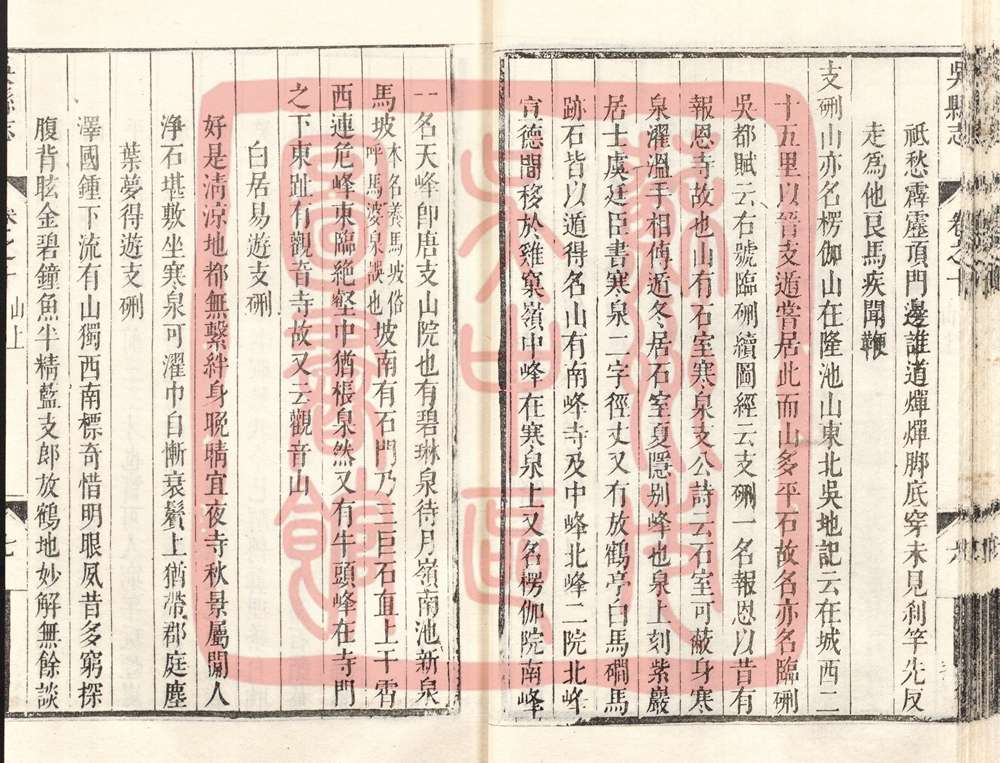 吳縣志 卷之十
祇愁霹靂頂門邊誰道燀燀脚底穿未見刹竿先反
走爲他良馬疾聞鞭
支硎山亦名楞伽山在隆池山東北吳地記云在城西二
十五里以晉支遁嘗居此而山多平石故名亦名臨硎
吳都賦云右號臨硎續圖經云支硎一名報恩以昔有
報恩寺故也山有石室寒泉支公詩云石室可蔽身寒
泉濯溫手相傳遁冬居石室夏隱别峰也泉上刻紫巖
居士虞廷臣書寒泉二字徑丈又有放鶴亭白馬磵馬
跡石皆以道得名山有南峰寺及中峰北峰二院北峰
宣德間移於雞窠嶺中峰在寒泉上又名楞伽院南峰
一名天峰卽唐支山院也有碧琳泉待月嶺南池新泉
馬坡本名羨馬坡俗呼馬婆泉誤也坡南有石門乃三巨石直上干霄
西連危峰東臨絶壑中猶棖臬然又有牛頭峰在寺門
之下東趾有觀音寺故又云觀音山
白居易遊支硎
好是清凉地都無繫絆身晩晴宜夜寺秋景屬閒人
淨石堪敷坐寒泉可濯巾自慚衰鬢上猶帶郡庭塵
葉夢得遊支硎
澤國鍾下流有山獨西南標奇惜明眼夙昔多窮探
腹背眩金碧鐘魚半精藍支郎放鶴地妙解無餘談